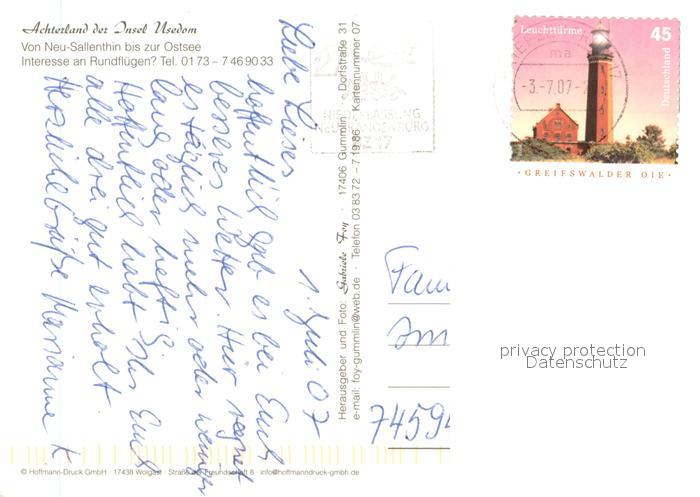 Achterland der Insel Usedom
Von Neu-Sallenthin bis zur Ostsee
Interesse an Rundflügen? Tel. 01 73 – 7 46 90 33
1. Juli 07
Liebe
hoffentlich gab es bei Euch
besseres Wetter. Hier regnet
es täglich mehr oder weniger
lang oder heftig.
Hoffentlich habt Ihr Euch
alle drei gut erholt.
Herzliche Grüße Marianne K
Herausgeber und Foto: Gabriele Foy · 17406 Gummlin · Dorfstraße 31
e-mail: foy-gummlin@web.de · Telefon 03 83 72 – 7 19 86 · Kartennummer 07
NIEDERLASSUNG
NEUBRANDENBURG
17
Leuchttürme
45
Deutschland
ma
-3.-7.07-
· GREIFSWALDER OIE ·
Fam
Im
74594
privacy protection
Datenschutz
© Hoffmann-Druck GmbH · 17438 Wolgast · Straße der Freundschaft 8 · info@hoffmanndruck-gmbh.de